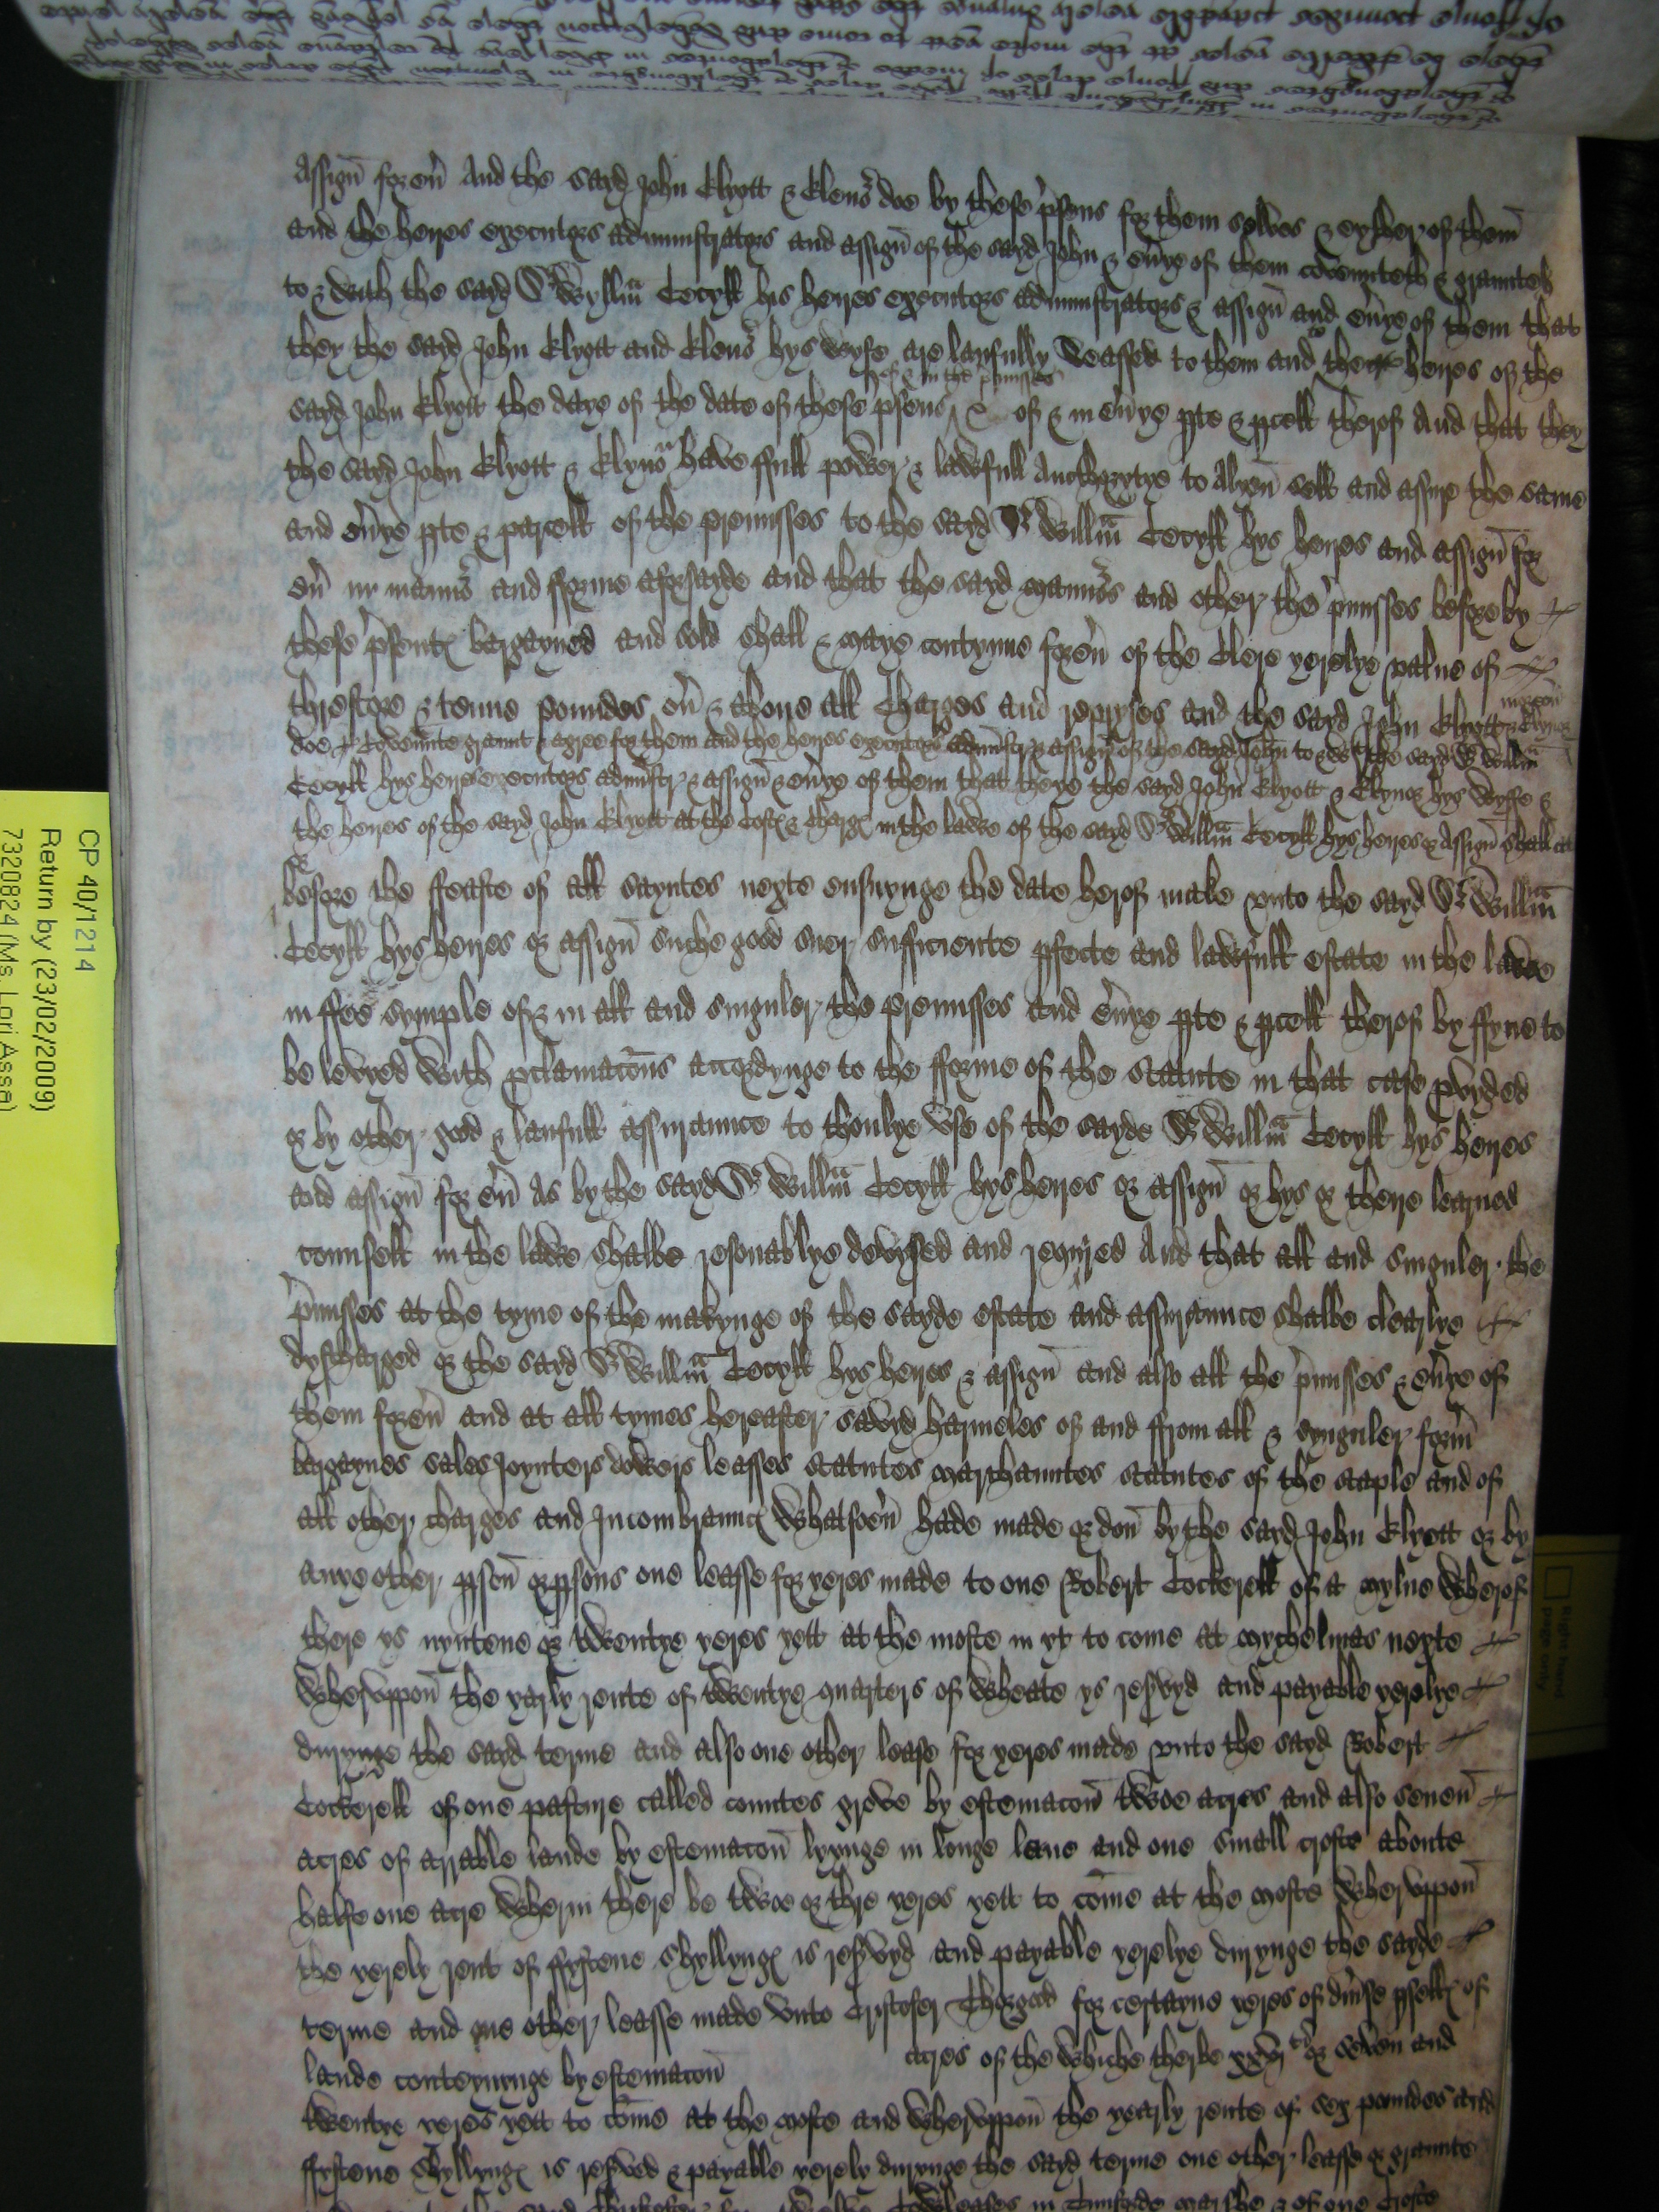 Assign̄ forev̄ And the sayd John Elyott & Elenor doe by these p̄sens for them selves & eyther of them
and the heyres executors admynistrators and assign̄ of the sayd John & ev̄ye of them covenuteth & graunteth
to & with the sayd Sr Wyllm̄ Cecyll his heyres executors admynistrators & assign̄ and ev̄ye of them that
they the sayd John Elyott and Elenor hys wyfe are laufully seassed to them and to the heyres of the
of & in the p̄misses
sayd John Elyott the daye of the date of these p̄sens & of & in ev̄ye pte & pcell therof And that they
the sayd John Elyott & Elynor have ffull power & lawfull Aucthorytye to Alyen̄ sell and assure the same
and ev̄ye pte & parcell of the premisses to the sayd Sr Willm̄ Cecyll hys heyres and assign̄ for
ev̄ in mann̄ and fforme aforsayde and that the sayd mannors and other the p̄misses before by
these p̄sent bargayned and sold shall & maye contynue forev̄ of the clere yerelye value of
threscore & tenne poundes ov̄ & above all Charges and repryses and the sayd John Elyott & Elynor
doe Covennte graunt & agree for them and the heyres executors admistr & assign̄ of the sayd John to & with the sayd Sr Willm̄
Cecyll hys heyres executors admistr & assign̄ & ev̄ye of them that theye the sayd John Elyott & Elynor hys wyffe &
the heyres of the sayd John Elyott at the Cost & Charg in the lawe of the sayd Sr Willm̄ Cecyll hys heyres & Assign̄ shall at
before the ffeaste of all sayntes nexte ensuynge the date herof make unto the sayd Sr Willm̄
Cecyll hys heyres or assign̄ suche good suer sufficiente pfecte and lawfull estate in the lawe
in ffee symple of & in all and singuler the premisses and ev̄ye pte & pcell therof by ffyne to
be levyed with pclamacōns accordynge to the fforme of the statute in that case pvyded
or by other good & laufull assuraunce to thonlye use of the sayde Sr Willm̄ Cecyll hys heyres
and assign̄ for ev̄ As by the sayd Sr Willm̄ Cecyll hys heyres or assign̄ or hys or theyre learned
counsell in the lawe shalbe resonablye devysed and requyred And that all and singuler the
p̄misses at the tyme of the makynge of the sayde estate and assuraunce shalbe clearlye
dyscharged or the sayd Sr Willm̄ Cecyll hys heyres & assign̄ and also all the p̄misses & ev̄ye of
them forev̄ and at all tymes hereafter savyd harmeles of and ffrom all & synguler form̄
bargaynes sales Joynters dowers leasses statutes marchauntes statutes of the staple and of
all other charges and Incombraunc whatsoev̄ hade made or don̄ by the sayd John Elyott or by
anye other pson̄ or psons one leasse for yeres made to one Robert Cockerell of a mylne wherof
there ys nyntene or twentye yeres yett at the moste in yt to come at mychelmas nexte
wheruppon̄ the yerly rente of twentye quarters of wheate ys resvyd and payable yerelye
durynge the sayd terme and also one other lease for yeres made unto the sayd Robert
Cockerell of one pasture called countes grove by estemacon̄ twoe acres and also seven̄
acres of arrable lande by estemacon̄ lyynge in longe lane and one small crofte aboute
halfe one acre wherin there be twoe or thre yeres yett to cōme at the moste wheruppon̄
the yerely rent of ffyftene shyllyng is resvyd and payable yerelye durynge the sayde
terme and one other leasse made unto Cristofer Thorgod for certayne yeres of div̄se psell of
lande conteynynge by estemacon̄ acres of the whiche therbe xxvj or seven and
twentye yeres yett to cōme at the moste and wheruppon̄ the yearly rente of sex poundes and
ffyftene shyllyng is resved & payable yerely durynge the sayd terme one other leasse or graunte
CP 40/1214
Return by (23/02/2009)
7320824 (Ms. Lori Assa)
Right hand
page only